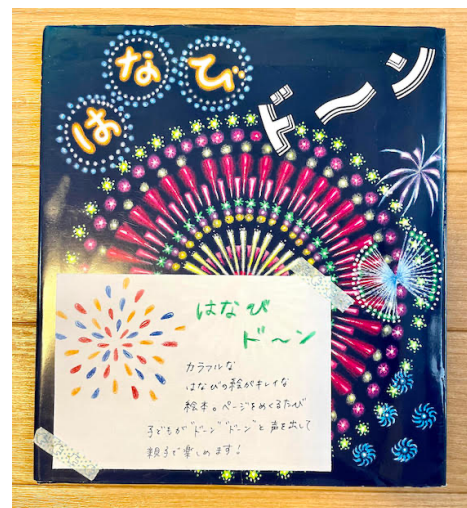 はなび
ド〜ン
はなび
ド〜ン
カラフルな
はなびの絵がキレイな
絵本。ページをめくるたび
子どもが"ドーン""ドーン"と声を出して
親子で楽しめます!